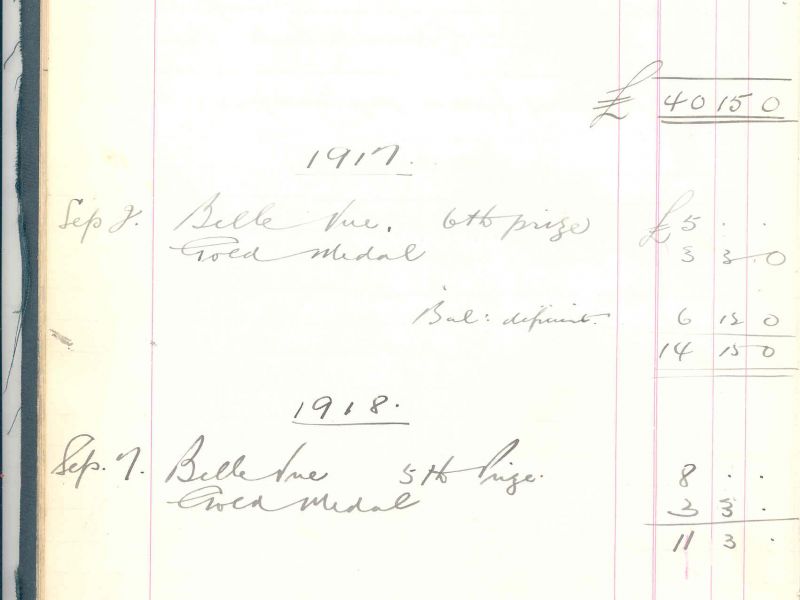 £ 40 15 0
1917.
Sep Belle Vue. 6th prize £ 5 . .
Gold Medal 3 3 0
Bal: deficient. 6 12 0
14 15 0
1918.
Sep. 7. Belle Vue 5th Prize. 8 . .
Gold Medal 3 3 .
11 3 .